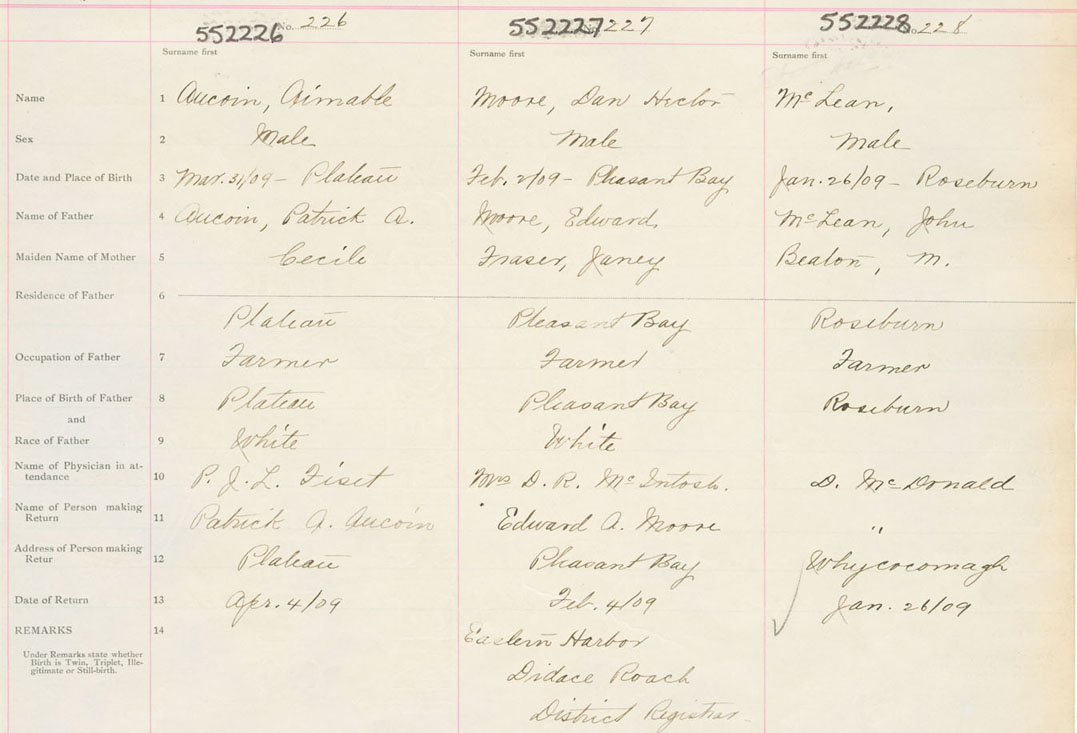 552226 No. 226 552227 227 552228 No. 228
Surname first Surname first Surname first
Name 1 Aucoin, Aimable Moore, Dan Hector McLean,
Sex 2 Male Male Male
Date and Place of Birth 3 Mar. 31/09 - Plateau Feb. 2/09 - Pleasant Bay Jan. 26/09 - Roseburn
Name of Father 4 Aucoin, Patrick A. Moore, Edward McLean, John
Maiden Name of Mother 5 Cecile Fraser, Janey Beaton, M.
Residence of Father 6
Plateau Pleasant Bay Roseburn
Occupation of Father 7 Farmer Farmer Farmer
Place of Birth of Father 8 Plateau Pleasant Bay Roseburn
and
Race of Father 9 White White
Name of Physician in at-
tendance 10 P. J. L. Fiset Mrs D. R. McIntosh. D. McDonald
Name of Person making
Return 11 Patrick A. Aucoin Edward A. Moore "
Address of Person making
Retur 12 Plateau Pleasant Bay Whycocomagh
Date of Return 13 Apr. 4/09 Feb. 4/09 Jan. 26/09
REMARKS 14 Eastern Harbor
Under Remarks state whether
Birth is Twin, Triplet, Ille-
gitimate or Still-birth.
Didace Roach
District Registrar